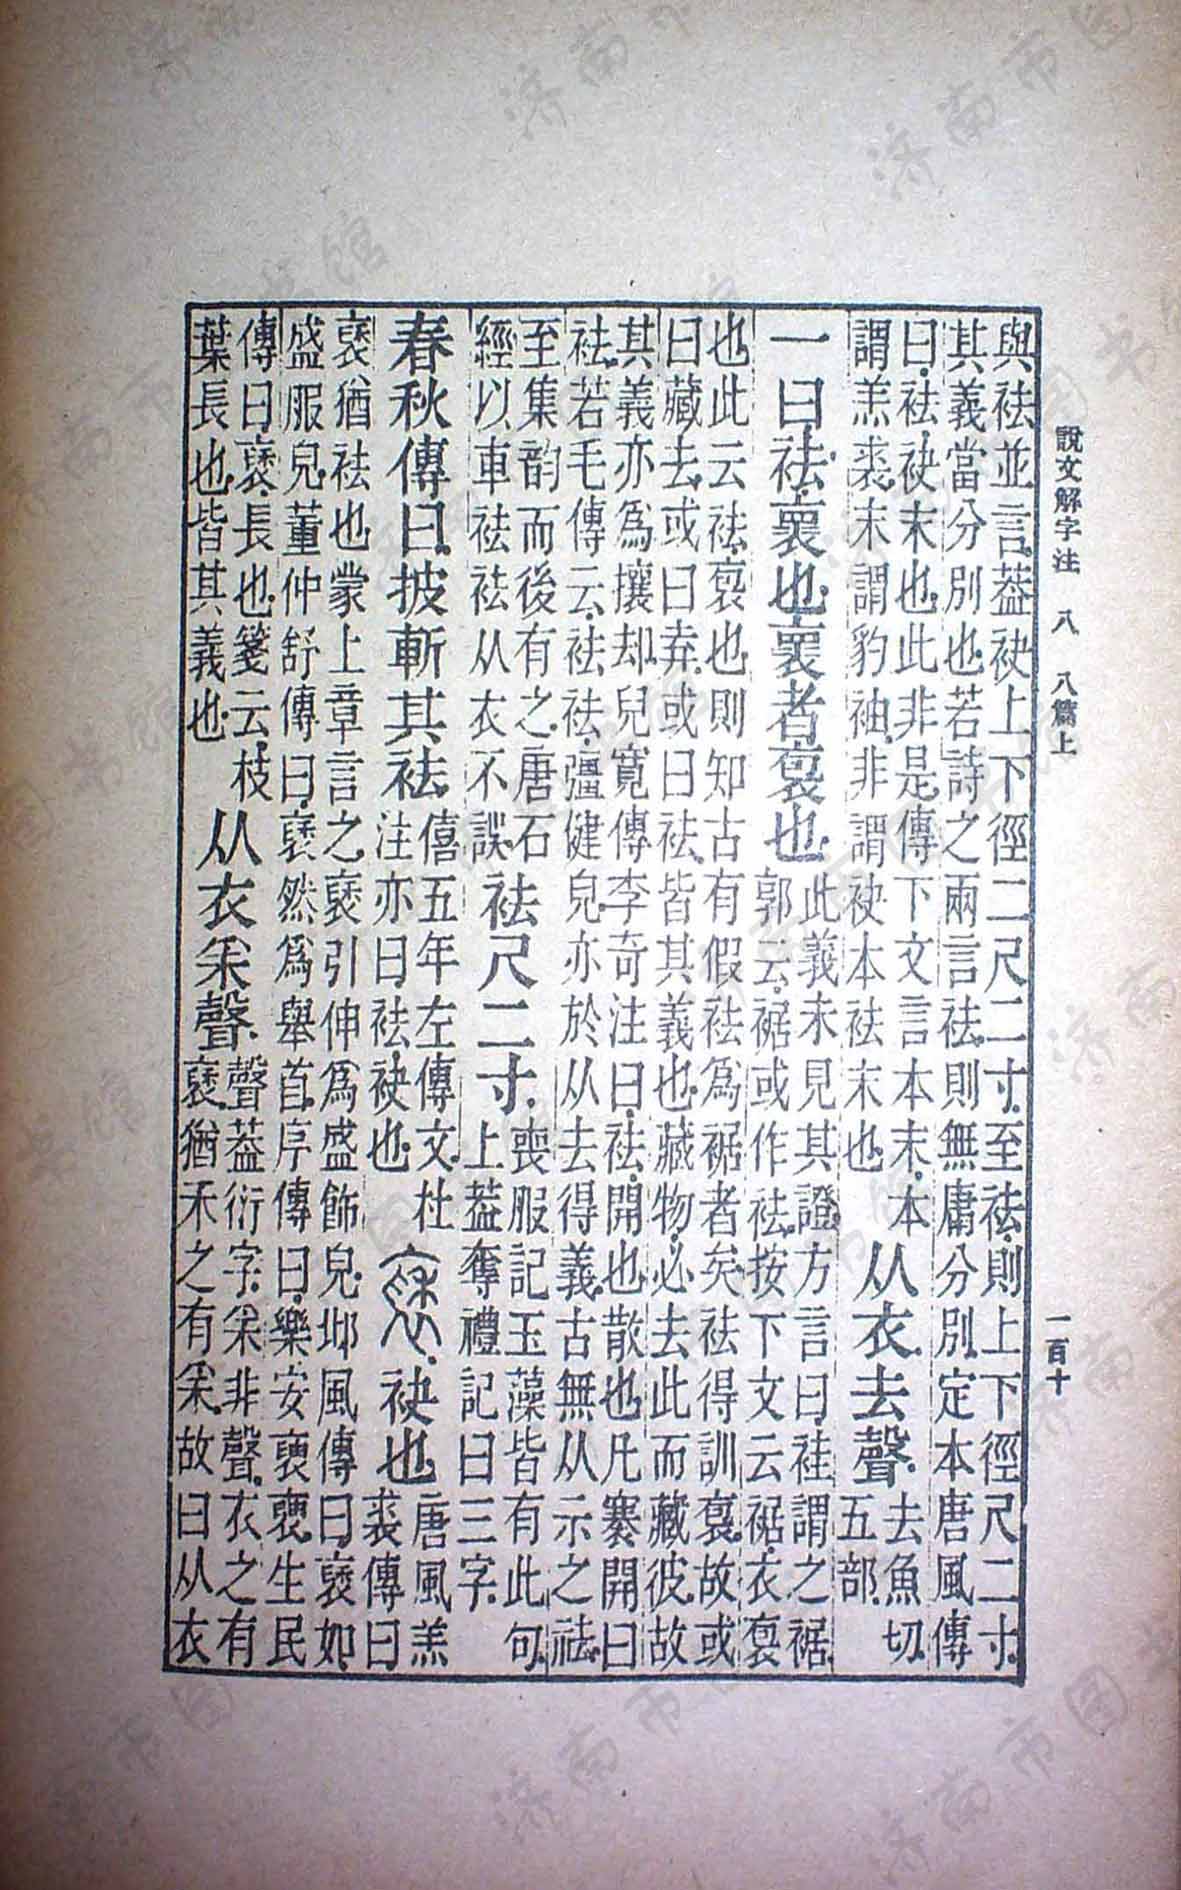 說文解字注 八 八篇上 一百十
與袪並言.葢袂上下徑二尺二寸.至袪.則上下徑尺二寸.
其義當分別也若詩之兩言袪.則無庸分別.定本唐風傳
曰.袪.袂末也此非是.傳下文言本末.本
謂羔裘.末謂豹袖.非謂袂本袪末也
从衣.去聲.
去魚切.
五部.
一曰.袪.褱也褱者裒也.
此義未見其證.方言曰.袿謂之裾.
郭云.裾或作袪.按下文云裾.衣裒
也此云袪.裒也則知古有假袪爲裾者矣.袪得訓裒.故或
曰藏去.或曰弆.或曰袪.皆其義也.藏物.必去此而藏彼.故
其義亦爲攘却.兒寬傳李奇注曰.袪.開也散也凡褰開曰
袪.若毛傳云.袪袪.彊健皃亦於从去得義.古無从示之祛.
至集韵而後有之.唐石
經以車袪袪从衣不誤.
袪尺二寸.
喪服記玉藻皆有此句.
上葢奪禮記曰三字.
春秋傳曰.披斬其袪.
僖五年左傳文.杜
注亦曰.袪.袂也.
褎.袂也.
唐風羔
裘傳曰.
褎.猶袪也蒙上章言之.褎引伸爲盛飾皃.邶風傳曰.褎如.
盛服皃.董仲舒傳曰.褎然爲舉首.序傳曰.樂安褎褎.生民
傳曰.褎.長也.箋云.枝
葉長也.皆其義也.
从衣.采聲.
聲葢衍字.采非聲.衣之有
褎.猶禾之有采.故曰从衣